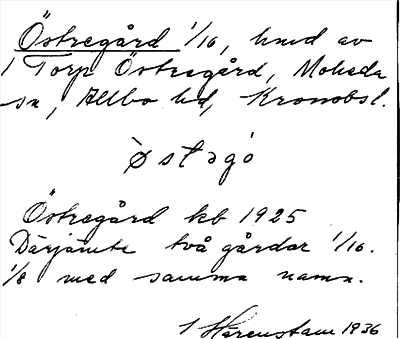 Östregård 1/16, hmd av
1 Torp Östregård, Moheda
sn, Allbo hd, Kronobsl.
`øst  ̬gó
Östregård kb 1925
Därjämte två gårdar 1/16.
1/8 med samma namn.
1 Harenstam 1936